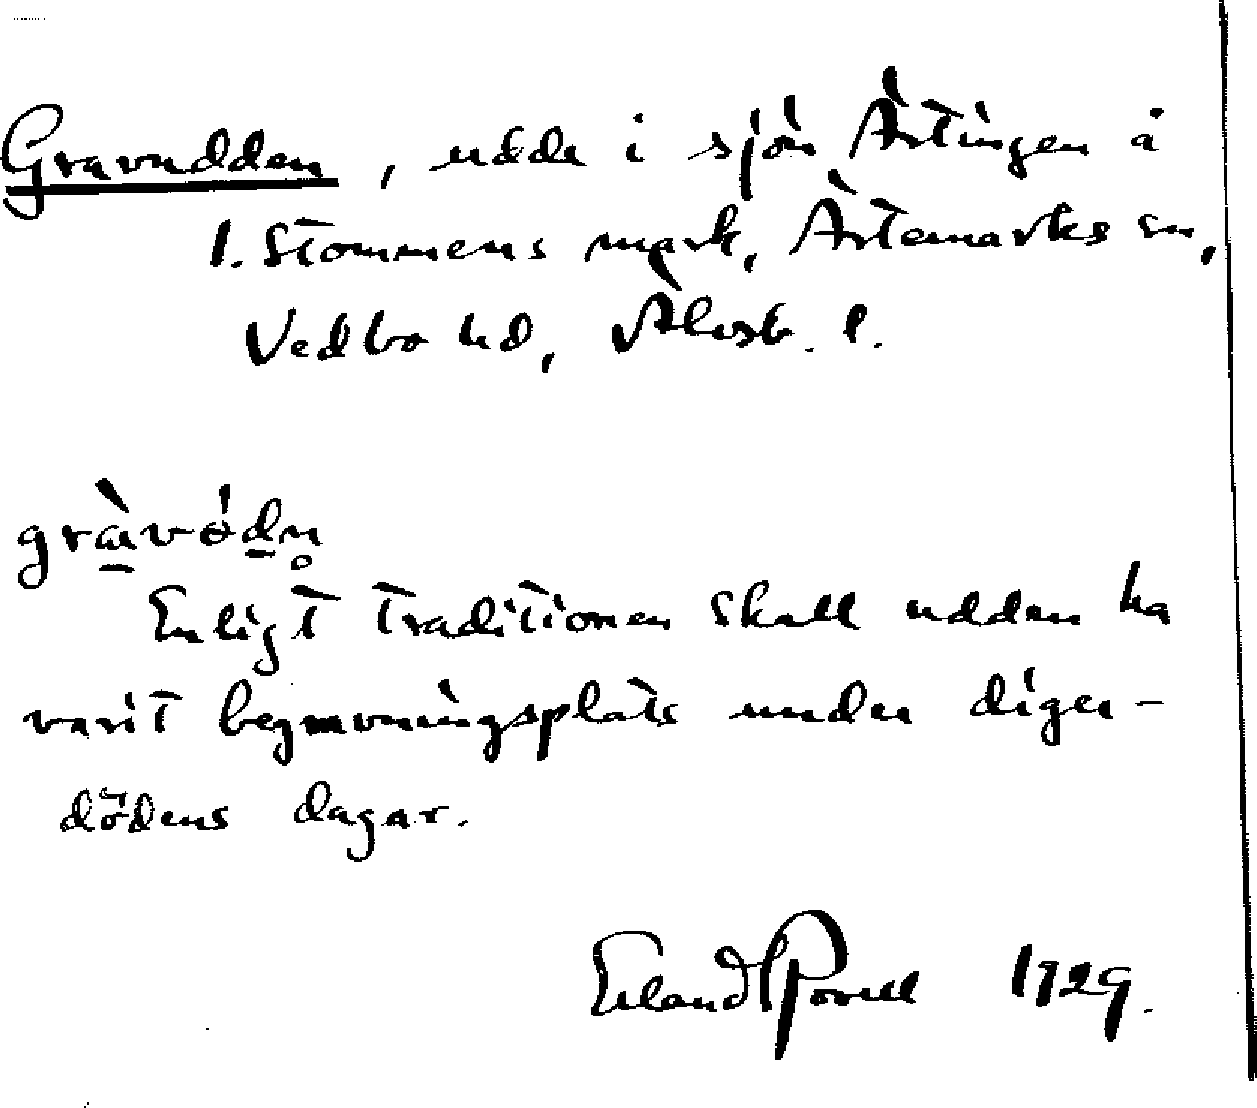 Gravudden, udde i sjön Ärtingen å
1. Stommens mark, Ärtemarks sn,
Vedbo hd, Älvsb. l.
gràvódn̥
Enligt traditionen skall udden ha
varit begravningsplats under diger-
dödens dagar.
Erland Rosell 1929.